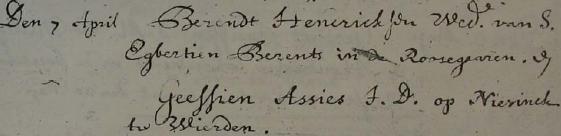 Den 7 April Berendt Henerick sen Wedr. van S.
Egbertien Berents in de Rossegaeren. en
Geessien Assies J. D. op Niesinck
to Wierden.